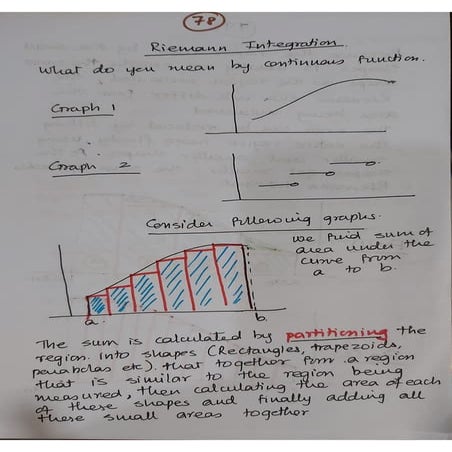 78
Riemann Integration.
What do you mean by continuous function.
Graph 1
Graph 2
Consider following graphs.
we find sum of
area under the
curve from
a to b.
a
b.
The sum is calculated by partitioning the
region into shapes (Rectangles, trapezoids,
parabolas etc). that together form a region
that is similar to the region being
measured, then calculating the area of each
of these shapes and finally adding all
these small areas together